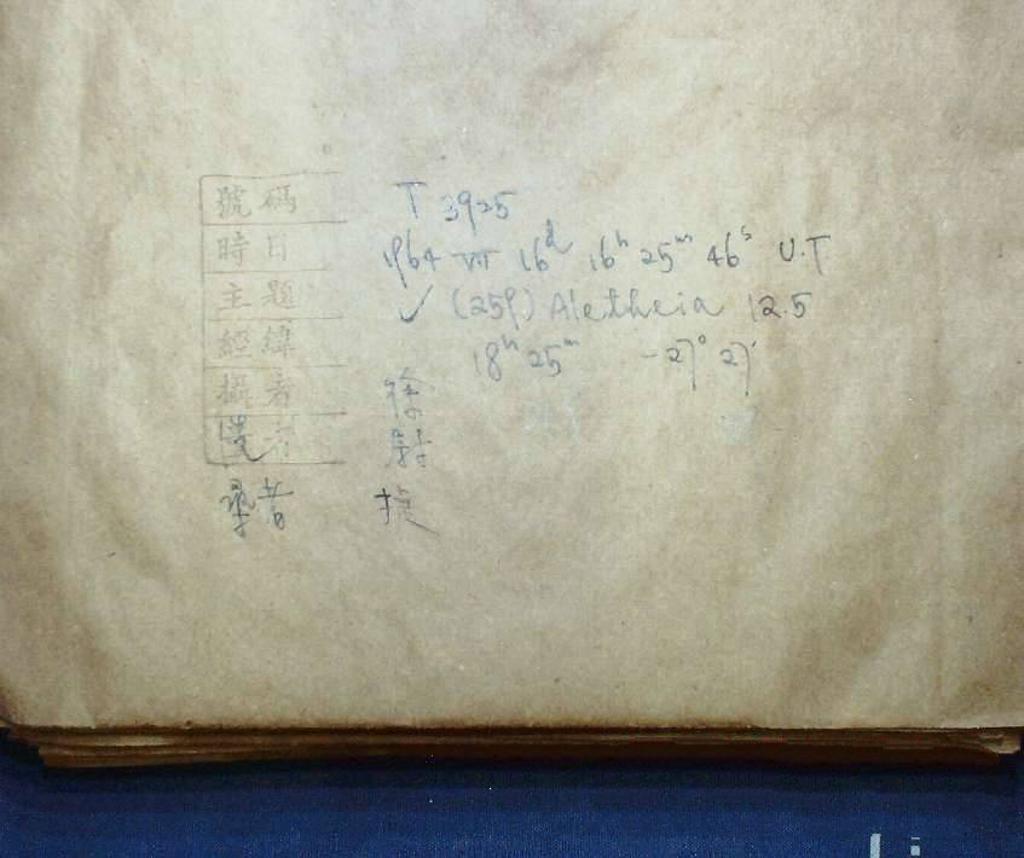 號碼 T 3925
時日 1964 VII 16ᵈ 16ʰ 25ᵐ 46ˢ U.T
主題 ✓ (259) Aletheia 12.5
經緯 18ʰ 25ᵐ -27° 27'
攝者 徐
者
者